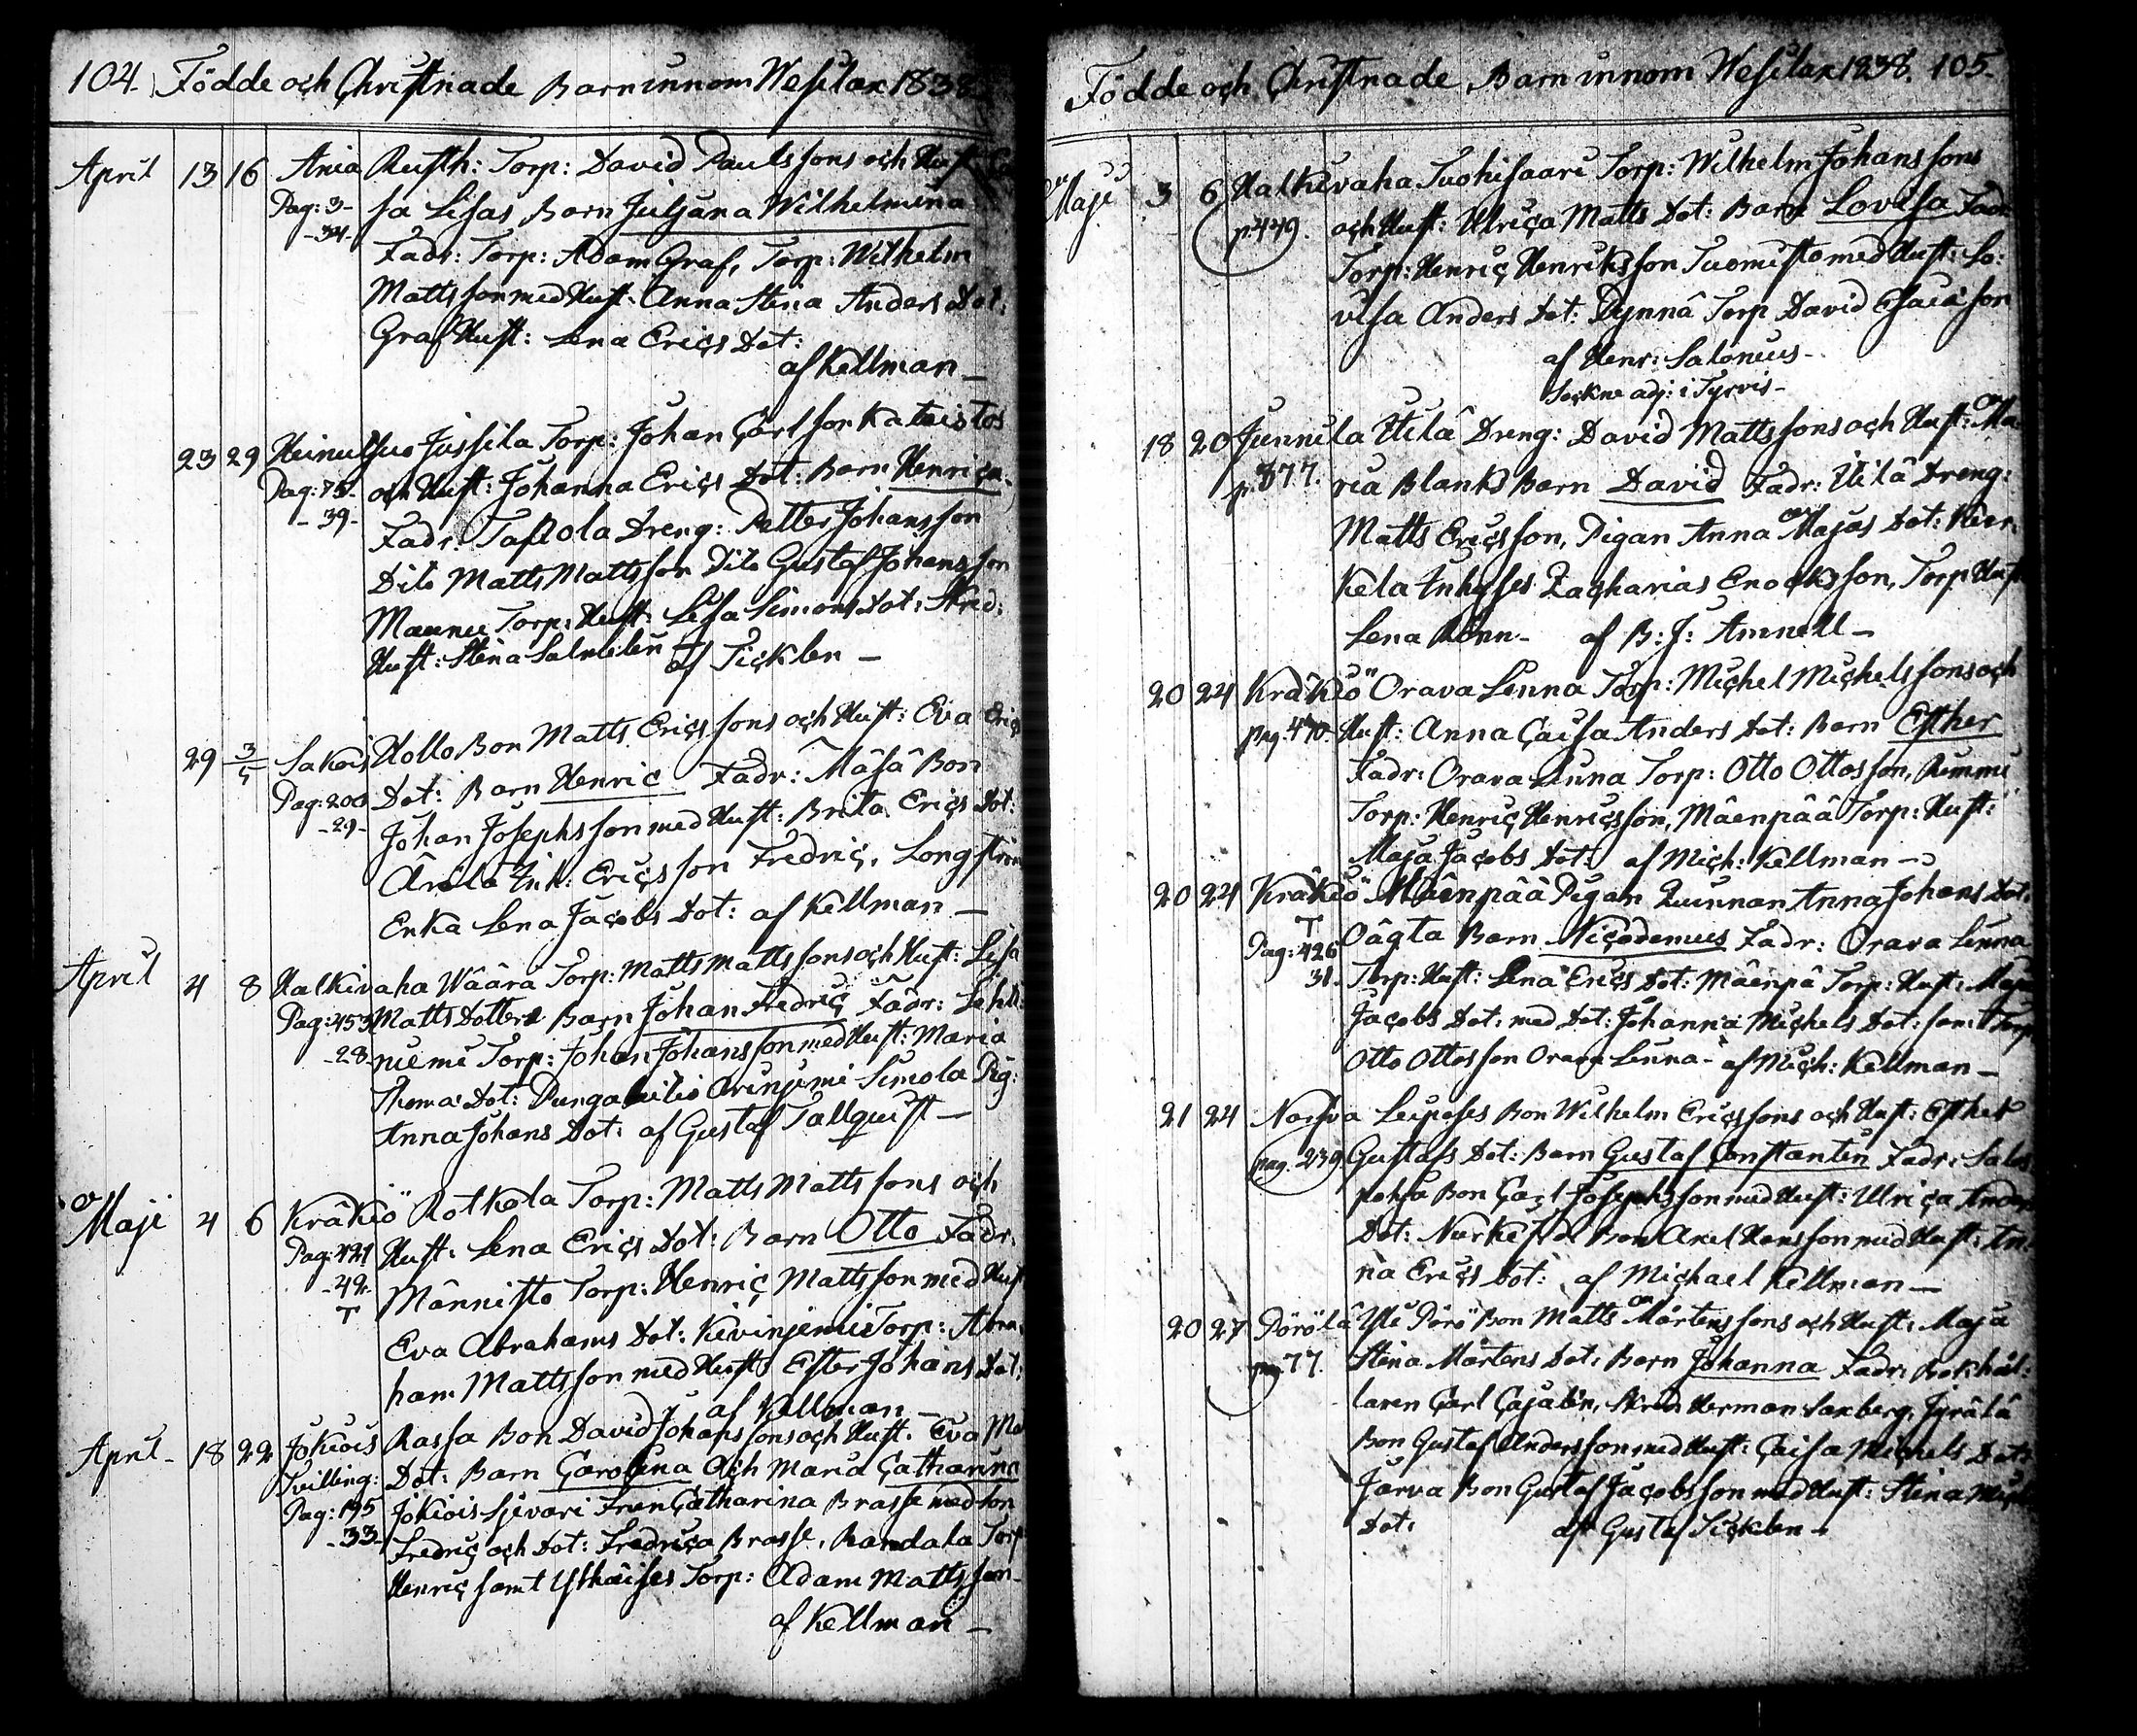 104. Födde och Christnade Barn innom Wesilax 1838
April 13 16 Ania Rusth: Torp: David Paulssons och Hust: Ca
Pag: 3- sa Lisas Barn Juljana Wilhelmina
-34- Fadr: Torp: Adam Graf, Torp: Wilhelm
Mattsson med Hust: Anna Stina Anders Dot:
Graf Hust: Lena Erics Dot:
af Kellman -
23 29 Jussila Torp: Johan Carlson
Pag: 75- och Hust: Johanna Erics Dot: Barn Henrica
- 39- Fadr: Dreng: Petter Johansson
Dito Matts Mattsson Dito Gustaf Johansson
Maunu Torp: Hust: Lisa Simons Dot: Skred:
Hust: Stina Salmelin af Ticklen -
29 3/5 Sakois Hollo Bon Matts Ericssons och Hust: Eva Erics
Pag: 200 Dot: Barn Henric Fadr: Mäsä Bon
-29- Johan Josephsson med Hust: Brita Erics Dot:
Inh: Ericsson Fredric, Longström
Enka Lena Jacobs Dot: af Kellman -
April 4 8 Halkivaha Wäärä Torp: Matts Mattssons och Hust: Lisa
Pag: 453 Matts Dotters Barn Johan Fredric Fadr: Lehti
-28- niemi Torp: Johan Johansson med Hust: Maria
Thomas Dot: Simola Pig:
Anna Johans Dot: af Gustaf Tallquist -
Maji 4 6 Kräkiö Rotkola Torp: Matts Mattssons och
Pag: 421 Hust: Lena Erics Dot: Barn Otto Fadr.
-42- Männisto Torp: Henric Mattsson med Hust
T Eva Abrahams Dot: Kivinjemi Torp: Abra
ham Mattsson med Hust: Ester Johans Dot:
af Kellman -
April - 18 22 Jokiois Rassa Bon David Johanssons och Hust: Eva Ma
Tvilling: Dot: Barn Carolina Och Maria Catharina
Pag: 195 Jokiois Sjevari Frun Catharina Brasse med Son
-33- Fredric och Dot: Fredrica Brasse, Randala Torp
Henric samt Torp: Adam Mattsson
af Kellman -
Födde och Christnade Barn innom Wesilax 1838. 105.
Maji 3 6 Halkivaha Tuohisaari Torp: Wilhelm Johanssons
p. 449. och Hust: Ulrica Matts Dot: Barn Lovisa Fadr
Torp: Henric Henriksson Tuomisto med Hust: Lo:
visa Anders Dot: Pynnä Torp David Esaiasson
af Henr: Salonius -
Sockne adj: i Tyrvis -
18 20 Junnila Uitä Dreng: David Mattssons och Hust: Ma
p. 377. ria Blanks Barn David Fadr: Uitä Dreng:
Matts Ericsson, Pigan Anna Majas Dot:
kela Inhyses Zacharias Enocksson, Torp Hust
Lena Rönn - af B: J: Amnell -
20 24 Kräkiö Orava Linna Torp: Michel Michelssons och
pag. 470 Hust: Anna Caisa Anders Dot: Barn Esther
Fadr: Orava Linna Torp: Otto Ottosson, Rimmi
Torp: Henric Henricsson, Mäenpää Torp: Hust:
Maja Jacobs Dot: af Mich: Kellman -
20 24 Kräkiö Mäenpää Pigan Quinnan Anna Johans Dot:
T Oägta Barn Nicodemus Fadr: Orava Linna
Pag: 426
31. Torp: Hust: Lena Erics Dot: Mäenpä Torp: Hust: Maja
Jacobs Dot: med Dot: Johanna Michels Dot: samt Torp
Otto Ottosson Orava Linna - af Mich: Kellman -
21 24 Narva Bon Wilhelm Ericssons och Hust: Esther
pag. 239 Gustafs Dot: Barn Gustaf Constantin Fadr: Salo
pohja Bon Carl Josephsson med Hust: Ulrica Anders
Dot: Bon Axel Hansson med Hust: An
na Erics Dot: af Michael Kellman -
20 27 Pörölä Yli Pörö Bon Matts Mårtenssons och Hust: Maja
pag 77. Stina Mårtens Dot: Barn Johanna Fadr: Bokhål:
laren Carl Cajalén, Skred. Herman Saxberg, Jyrälä
Bon Gustaf Andersson med Hust: Caisa Michels Dot:
Järva Bon Gustaf Jacobsson med Hust: Stina Michels
Dot: af Gustaf Ticklen -